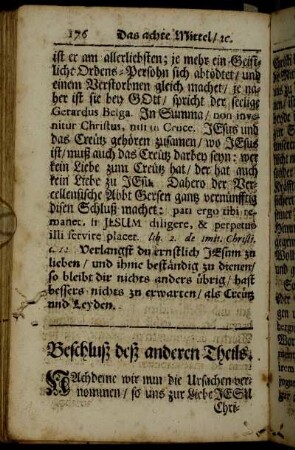 176 Das achte Mittel/ ꝛc.
ist er am allerliebsten; je mehr ein Geist-
liche Ordens-Persohn sich abtödtet/ und
einem Verstorbnen gleich machet/ je nä-
her ist sie bey GOtt/ spricht der seelige
Gerardus Belga. In Summa/ non inve-
nitur Christus, nisi in Cruce. JEsus und
das Creütz gehören zusamen/ wo JEsus
ist/ muß auch das Creütz darbey seyn: wer
kein Liebe zum Creütz hat/ der hat auch
kein Liebe zu JEsu. Dahero der Ver-
cellensische Abbt Gersen gantz vernünfftig
disen Schluß machet: pati ergo tibi re-
manet, si JESUM diligere, & perpetuò
illi servire placet. lib. 2. de imit. Christi.
c. 12. Verlangst du ernstlich JEsum zu
lieben/ und ihme beständig zu dienen/
so bleibt dir nichts anders übrig/ hast
bessers nichts zu erwarten/ als Creütz
und Leyden.
Beschluß deß anderen Theils.
NAchdeme wir nun die Ursachen ver-
nommen/ so uns zur Liebe JESU
Chri-